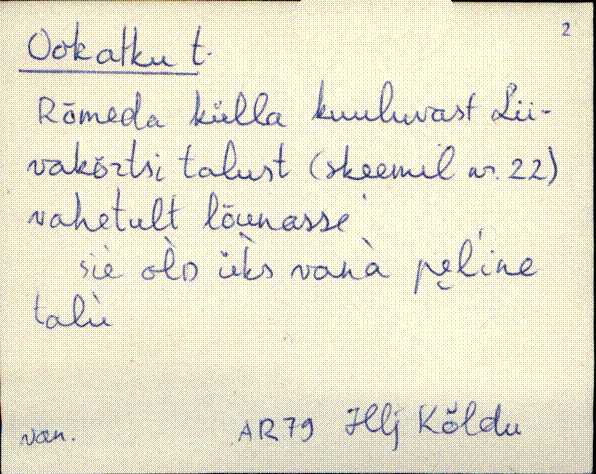 2
Ookatku t.
Rõmeda külla kuuluvast Lii-
vakõrtsi talust (skeemil nr. 22)
vahetult lõunasse
siè òlɒ üks vanà pę́line
talù
van. AR79 Hlj Kõldu